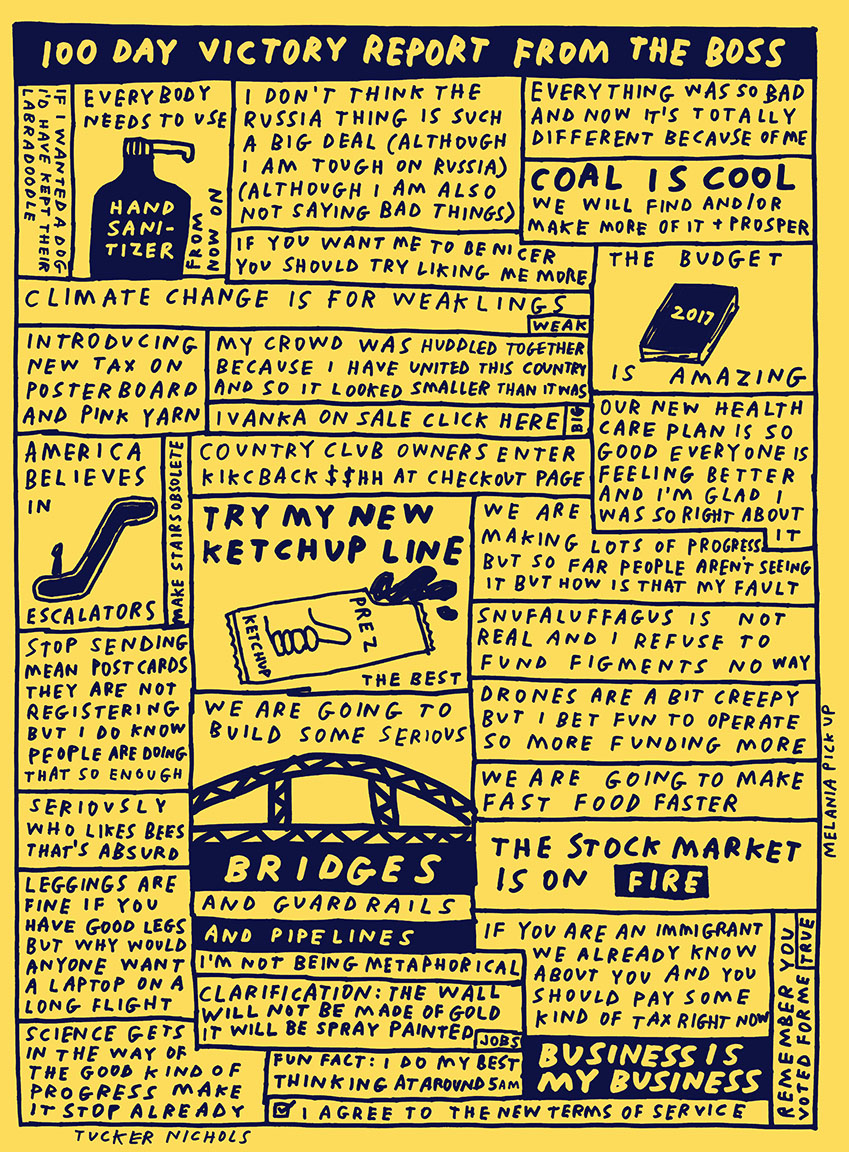 100 DAY VICTORY REPORT FROM THE BOSS
IF I WANTED A DOG
I'D HAVE KEPT THEIR
LABRADOODLE
EVERYBODY
NEEDS TO USE
HAND
SANI-
TIZER
FROM
NOW ON
I DON'T THINK THE
RUSSIA THING IS SUCH
A BIG DEAL (ALTHOUGH
I AM TOUGH ON RUSSIA)
(ALTHOUGH I AM ALSO
NOT SAYING BAD THINGS)
EVERYTHING WAS SO BAD
AND NOW IT'S TOTALLY
DIFFERENT BECAUSE OF ME
COAL IS COOL
WE WILL FIND AND/OR
MAKE MORE OF IT + PROSPER
IF YOU WANT ME TO BE NICER
YOU SHOULD TRY LIKING ME MORE
THE BUDGET
2017
IS AMAZING
CLIMATE CHANGE IS FOR WEAKLINGS
WEAK
INTRODUCING
NEW TAX ON
POSTERBOARD
AND PINK YARN
MY CROWD WAS HUDDLED TOGETHER
BECAUSE I HAVE UNITED THIS COUNTRY
AND SO IT LOOKED SMALLER THAN IT WAS
IVANKA ON SALE CLICK HERE
BIG
OUR NEW HEALTH
CARE PLAN IS SO
GOOD EVERYONE IS
FEELING BETTER
AND I'M GLAD I
WAS SO RIGHT ABOUT
IT
AMERICA
BELIEVES
IN
ESCALATORS
MAKE STAIRS OBSOLETE
COUNTRY CLUB OWNERS ENTER
KIKCBACK $$HH AT CHECKOUT PAGE
TRY MY NEW
KETCHUP LINE
KETCHUP
PREZ
THE BEST
WE ARE
MAKING LOTS OF PROGRESS
BUT SO FAR PEOPLE AREN'T SEEING
IT BUT HOW IS THAT MY FAULT
SNUFALUFFAGUS IS NOT
REAL AND I REFUSE TO
FUND FIGMENTS NO WAY
STOP SENDING
MEAN POSTCARDS
THEY ARE NOT
REGISTERING
BUT I DO KNOW
PEOPLE ARE DOING
THAT SO ENOUGH
WE ARE GOING TO
BUILD SOME SERIOUS
BRIDGES
AND GUARDRAILS
AND PIPELINES
I'M NOT BEING METAPHORICAL
DRONES ARE A BIT CREEPY
BUT I BET FUN TO OPERATE
SO MORE FUNDING MORE
WE ARE GOING TO MAKE
FAST FOOD FASTER
MELANIA PICK UP
SERIOUSLY
WHO LIKES BEES
THAT'S ABSURD
THE STOCK MARKET
IS ON FIRE
LEGGINGS ARE
FINE IF YOU
HAVE GOOD LEGS
BUT WHY WOULD
ANYONE WANT
A LAPTOP ON A
LONG FLIGHT
IF YOU ARE AN IMMIGRANT
WE ALREADY KNOW
ABOUT YOU AND YOU
SHOULD PAY SOME
KIND OF TAX RIGHT NOW
REMEMBER YOU
VOTED FOR ME
TRUE
CLARIFICATION: THE WALL
WILL NOT BE MADE OF GOLD
IT WILL BE SPRAY PAINTED
JOBS
SCIENCE GETS
IN THE WAY OF
THE GOOD KIND OF
PROGRESS MAKE
IT STOP ALREADY
FUN FACT: I DO MY BEST
THINKING AT AROUND 5AM
BUSINESS IS
MY BUSINESS
I AGREE TO THE NEW TERMS OF SERVICE
TUCKER NICHOLS